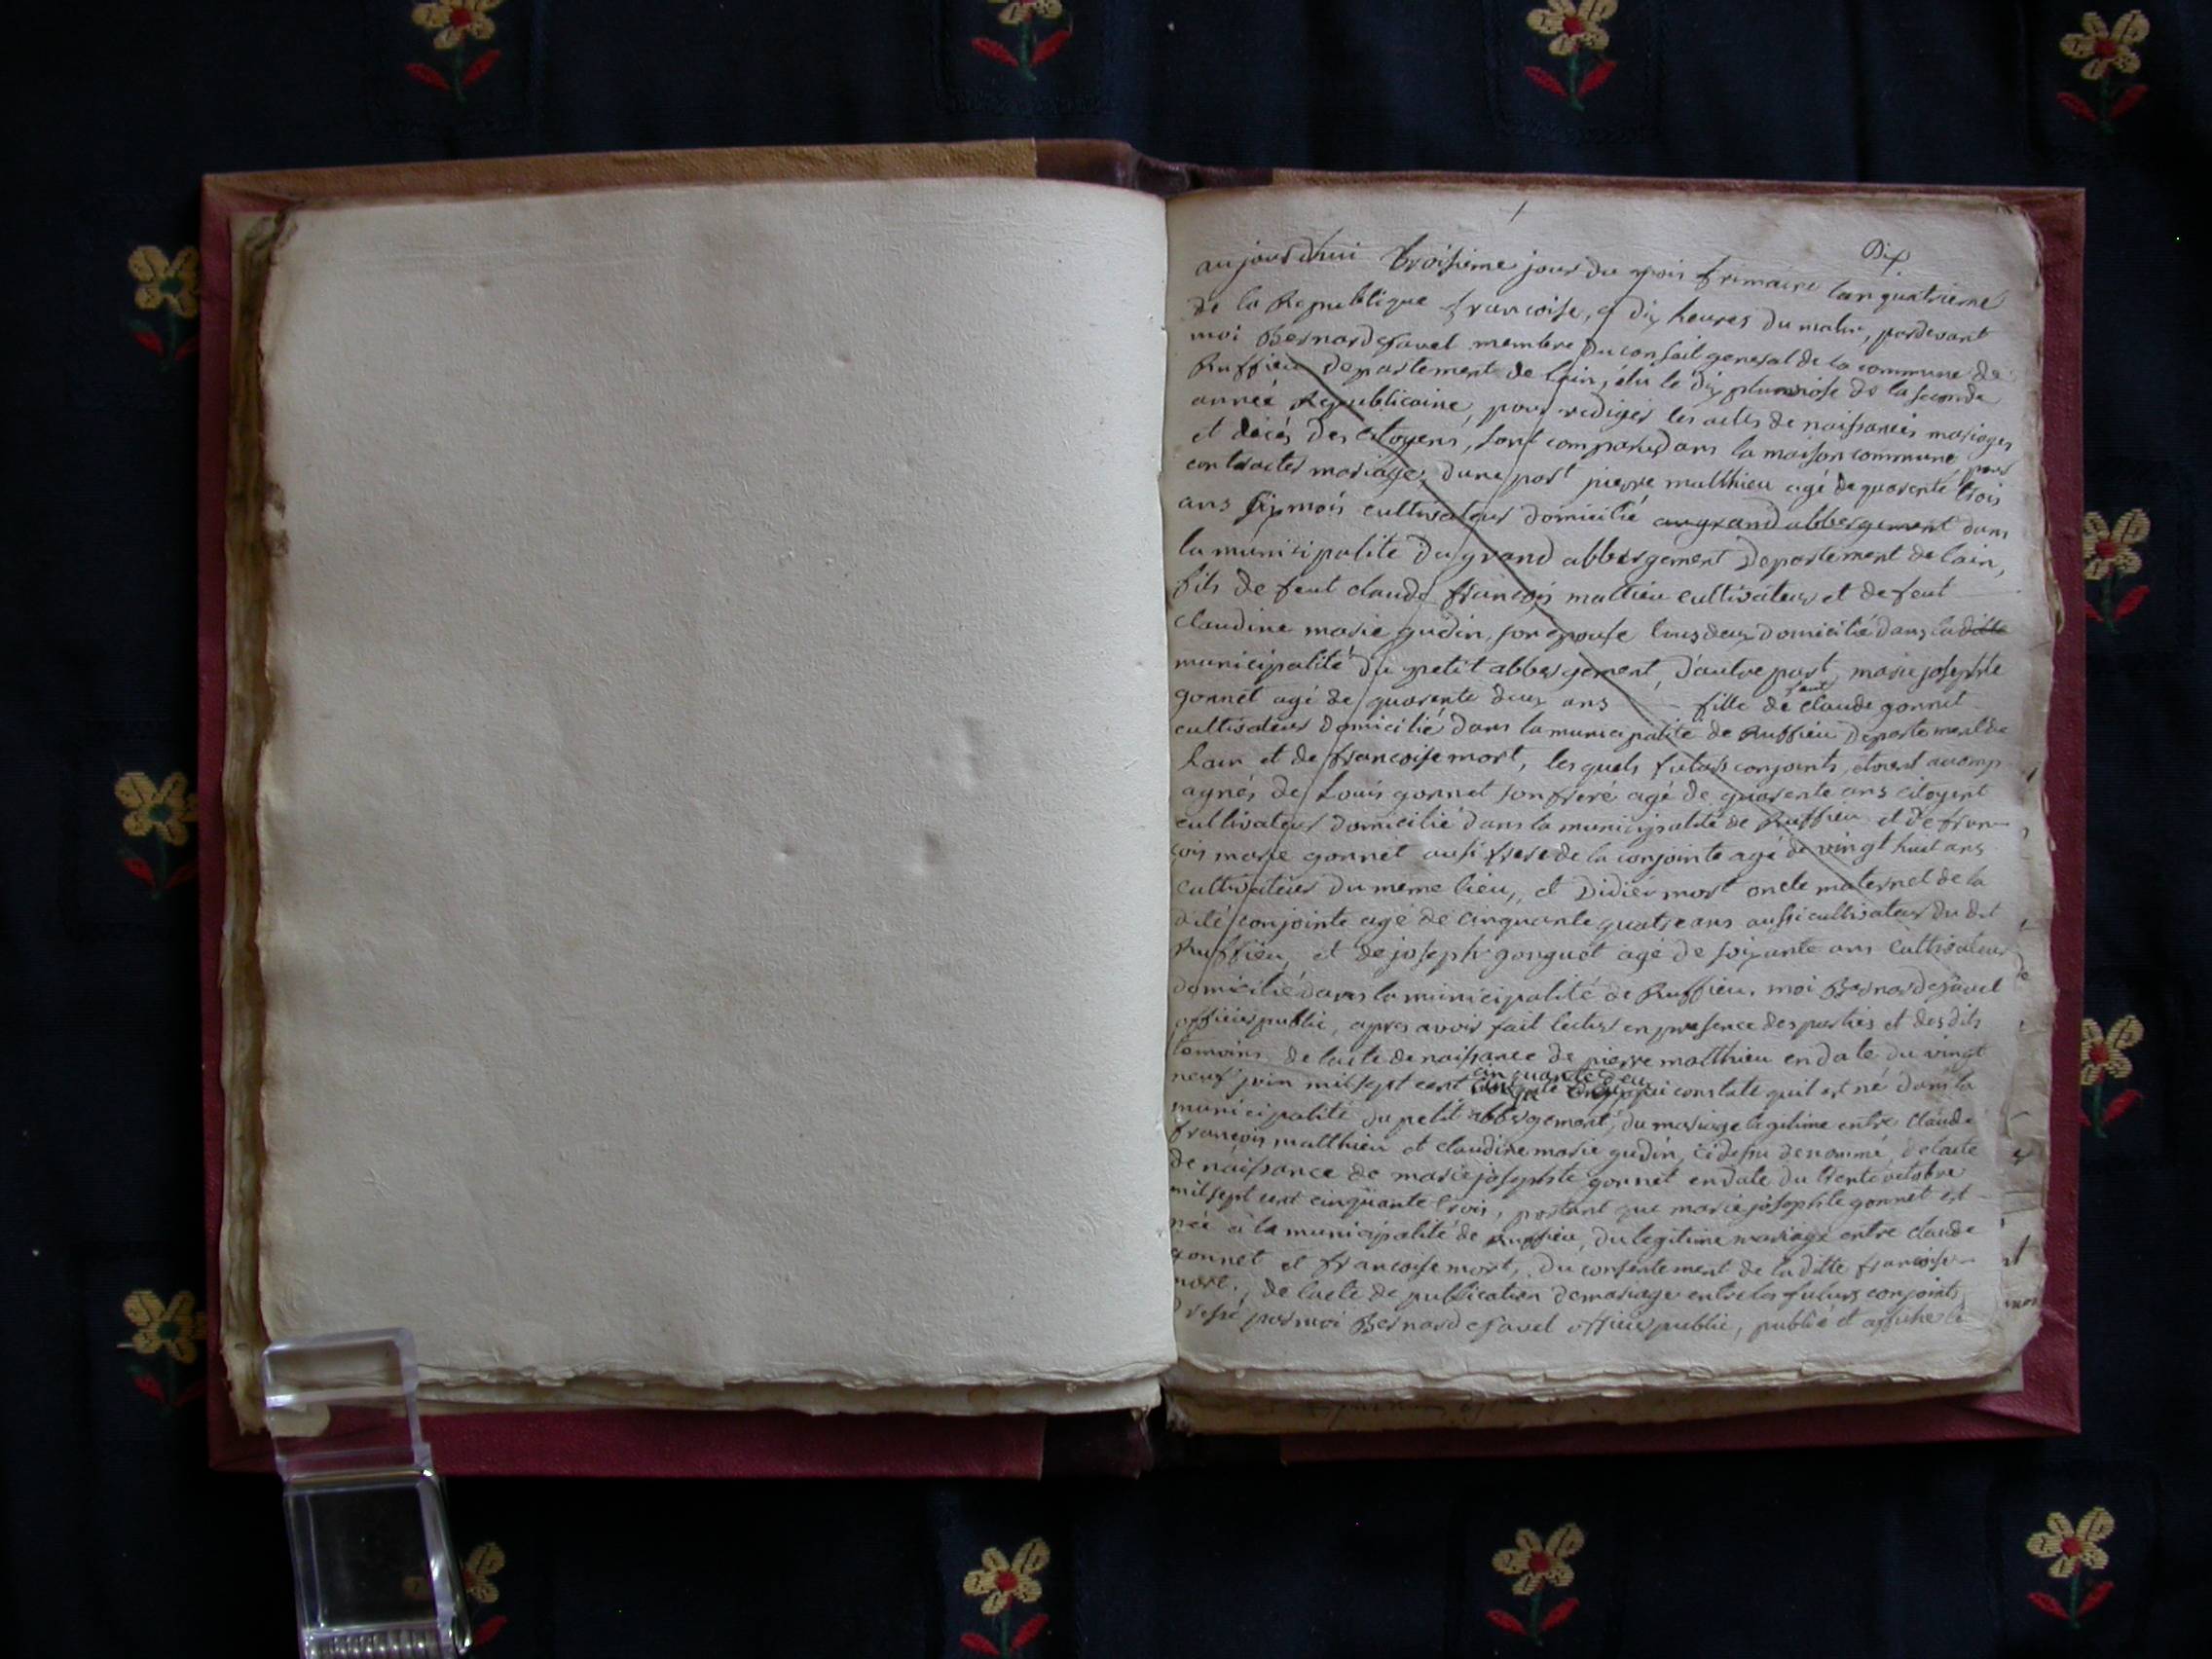 Dix
aujourdhui troisieme jour du mois frimaire lan quatrieme
de la Republique francoise, a dix heures du matin, pardevant
moi Bernard Savel membre du conseil general de la commune de
Ruffieu departement de lain, élu le dix pluviose de la seconde
année Republicaine, pour rediger les actes de naissances mariages
et décés des citoyens, sont comparu dans la maison commune pour
contracter mariage, dune part pierre matthieu agé de quarente trois
ans six mois cultivateur domicilié au grand abbergement dans
la municipalite du grand abbergement Departement de lain,
fils de feut claude françois mattieu cultivateur et de feut
claudine marie gudin, son epouse tous deux domicilié dans la ditte
municipalité du petit abbergement, d'autre part, marie josephte
gonnet agé de quarente deux ans fille de feut claude gonnet
cultivateur domicilié dans la municipalité de Ruffieu departement de
Lain et de francoise mort, les quels futurs conjoints etoient acomp
agnés de Louis gonnet son freré agé de quarente ans citoyent
cultivateur domicilié dans la municipalité de Ruffieu et de fran
çois marie gonnet ausi frere de la conjointe agé de vingt huit ans
cultivateur du meme lieu, et Didier mort oncle maternel de la
dite conjointe agé de cinquante quatre ans aussi cultivateur du dit
Ruffieu, et de joseph gonguet agé de soixante ans cultivateur
domicilié dans la municipalité de Ruffieu. moi Bernard Savel
officier public, apres avoir fait lectur en presence des parties et des dits
temoins, de lacte de naissance de pierre matthieu en date du vingt
neuf juin mil sept cent cinquante deux qui constate quil est né dans la
municipalité du petit abbergement, du mariage legitime entre Claude
françois matthieu et claudine marie gudin, ci dessu denommé, de lacte
de naissance de marie josephte gonnet en date du trente octobre
mil sept cent cinquante trois, portant que marie josephte gonnet est
née à la municipalité de Ruffieu, du legitime mariage entre claude
gonnet et francoise mort, du consentement de la ditte francoise
mort, de lacte de publication de mariage entre les futurs conjoints
dressé par moi Bernard Savel officier public, publié et affiché le